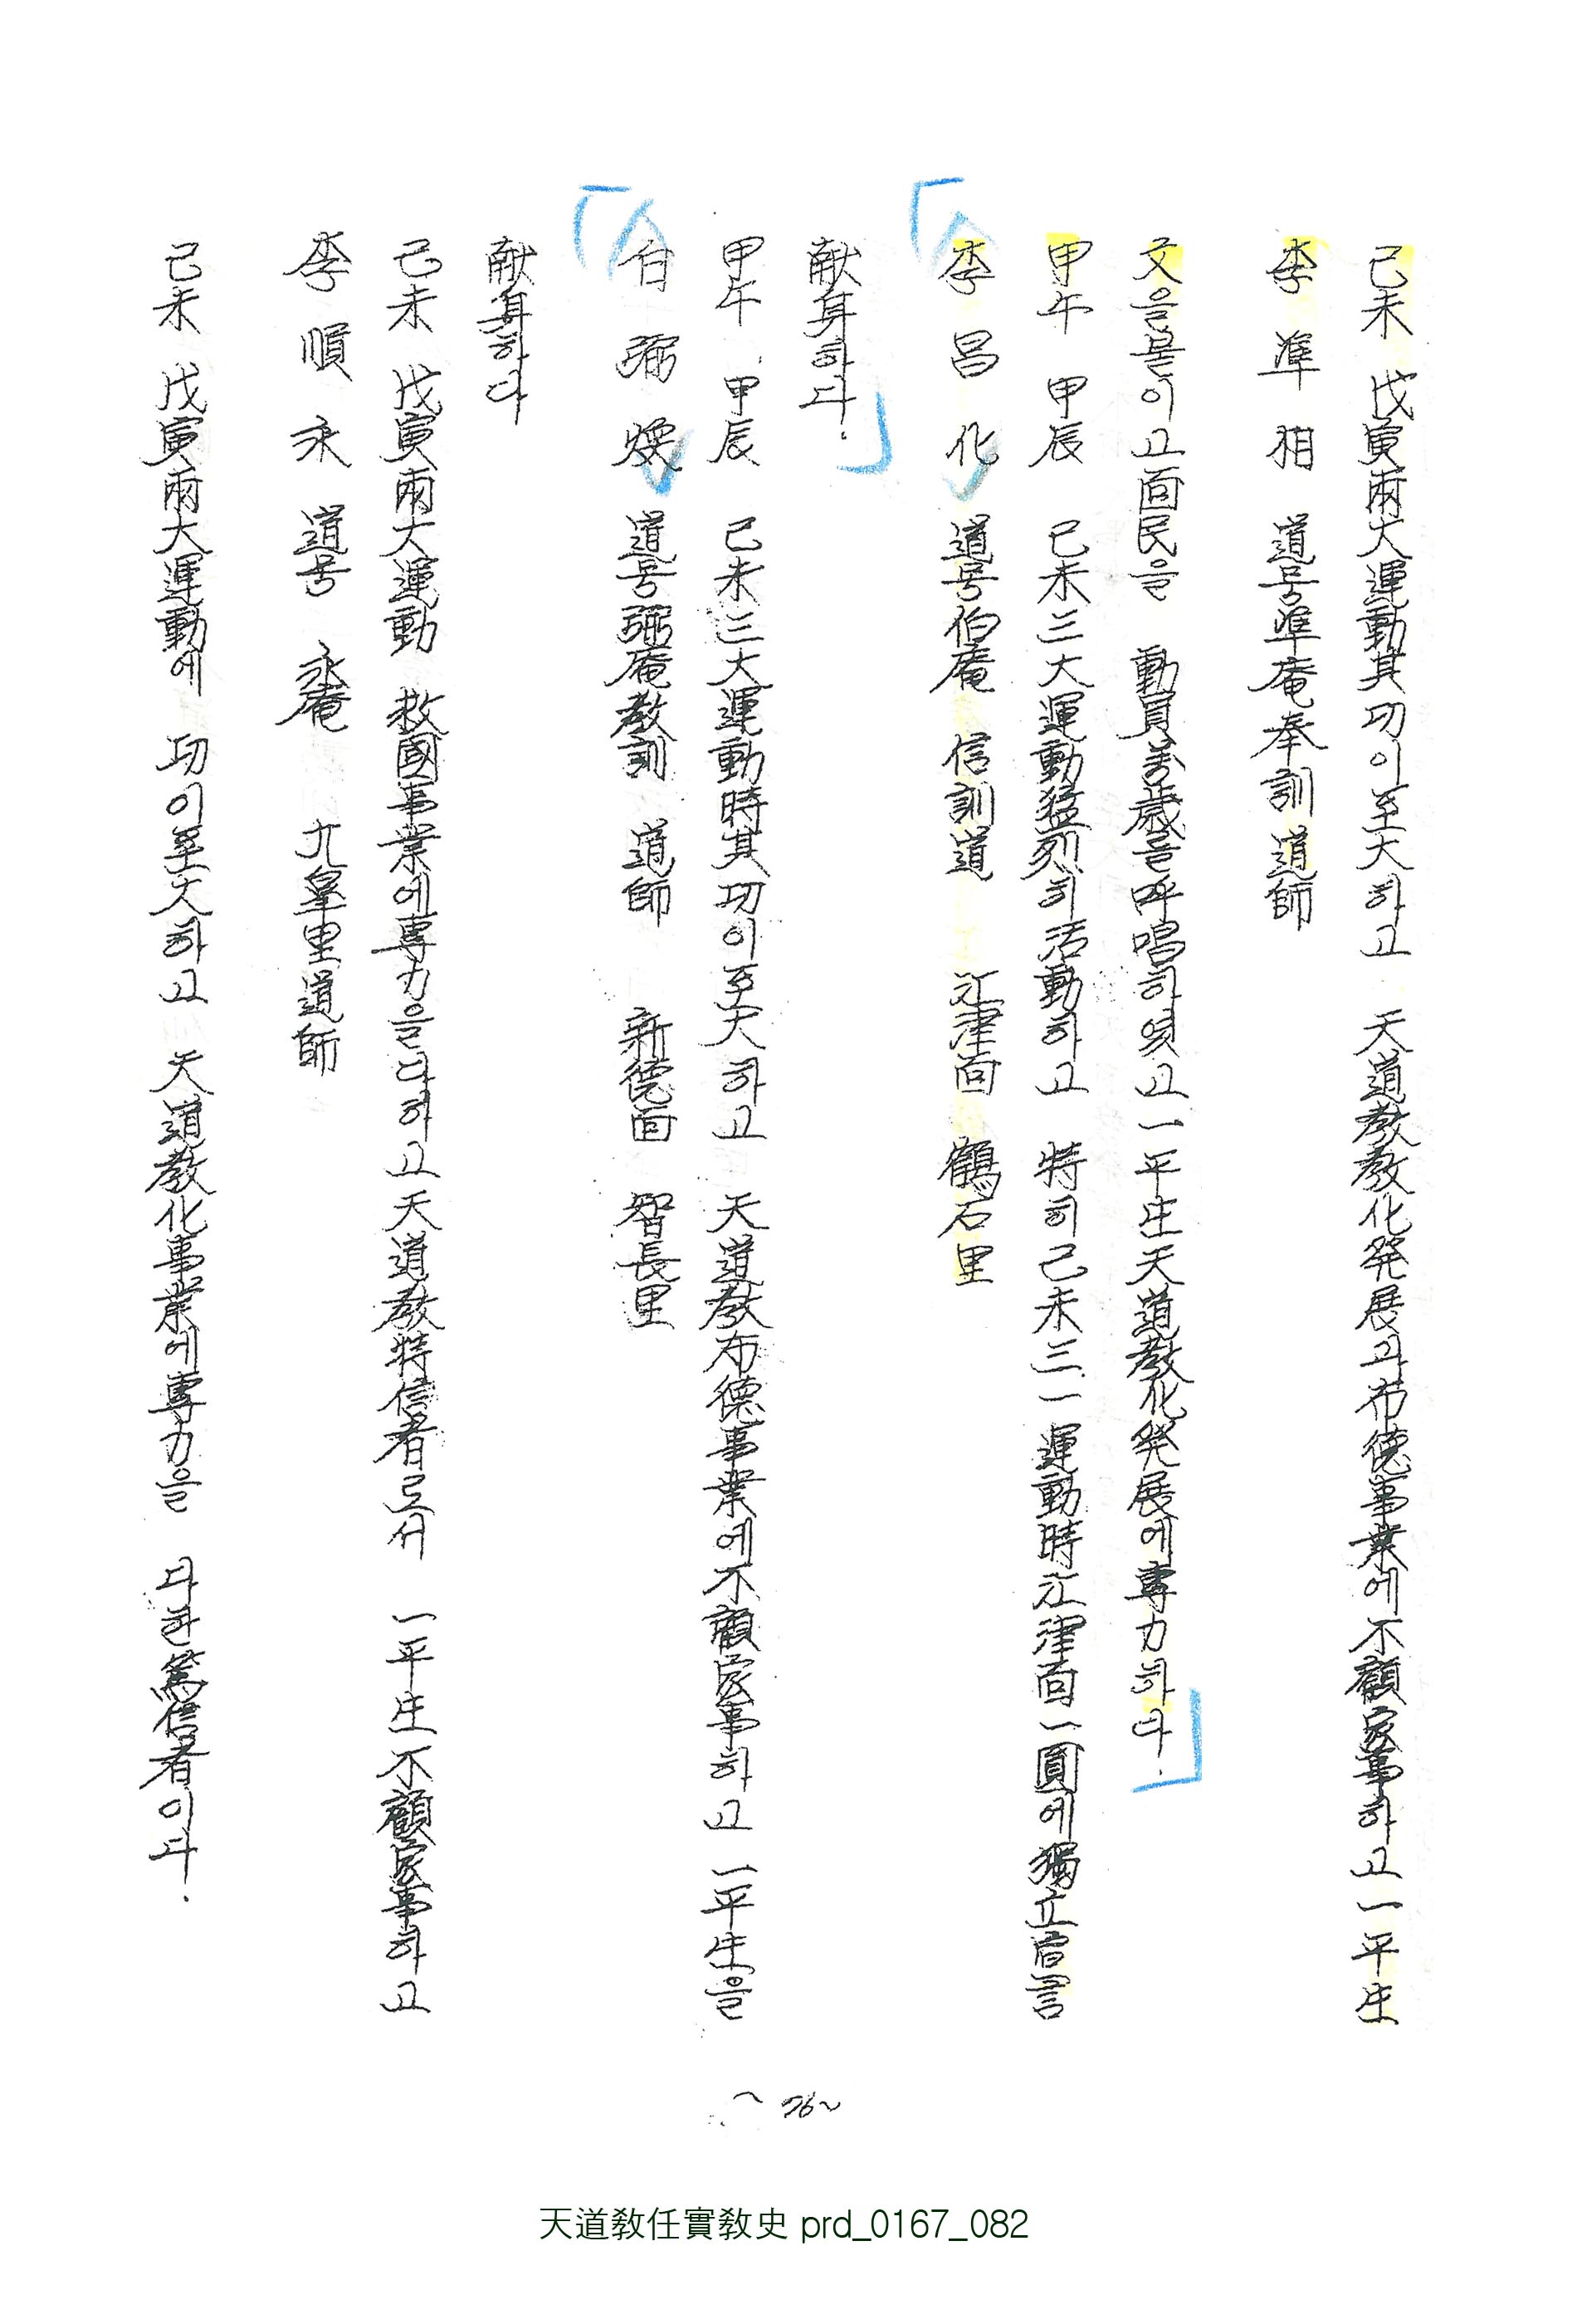 己未 戊寅兩大運動其功이至大하고 天道教教化発展과布德事業에不顧家事하고一平生
李準相 道号準庵奉訓道師
文을붙이고面民을 動員萬歲를呼唱하였고一平生天道教化発展에專力하다.
甲午 甲辰 己未三大運動猛烈히活動하고 特히己未三一運動時江津面一圓에獨立宣言
李昌化 道号伯庵 信訓道 江津面 鶴石里
献身하다.
甲午 甲辰 己未三大運動時其功이至大하고 天道教布德事業에不顧家事하고 一平生을
白弼煥 道号弼庵教訓 道師 新德面 智長里
献身하다
己未 戊寅兩大運動 救國事業에專力을다하고天道教特信者로서 一平生不顧家事하고
李順永 道号 永庵 九皐里道師
己未 戊寅兩大運動에 功이至大하고 天道教化事業에專力을 다한篤信者이다.
~76~
天道教任實教史 prd_0167_082